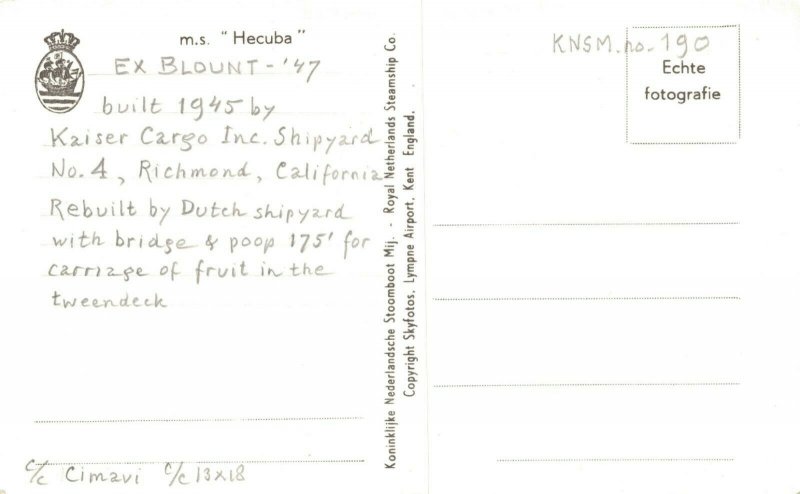 m.s. " Hecuba "
EX BLOUNT - '47
built 1945 by
Kaiser Cargo Inc. Shipyard
No. 4, Richmond, California
Rebuilt by Dutch shipyard
with bridge & poop 175' for
carriage of fruit in the
tweendeck
c/c Cimavi c/c 13x18
Koninklijke Nederlandsche Stoomboot Mij. - Royal Netherlands Steamship Co.
Copyright Skyfotos, Lympne Airport, Kent England.
KNSM. no. 190
Echte
fotografie